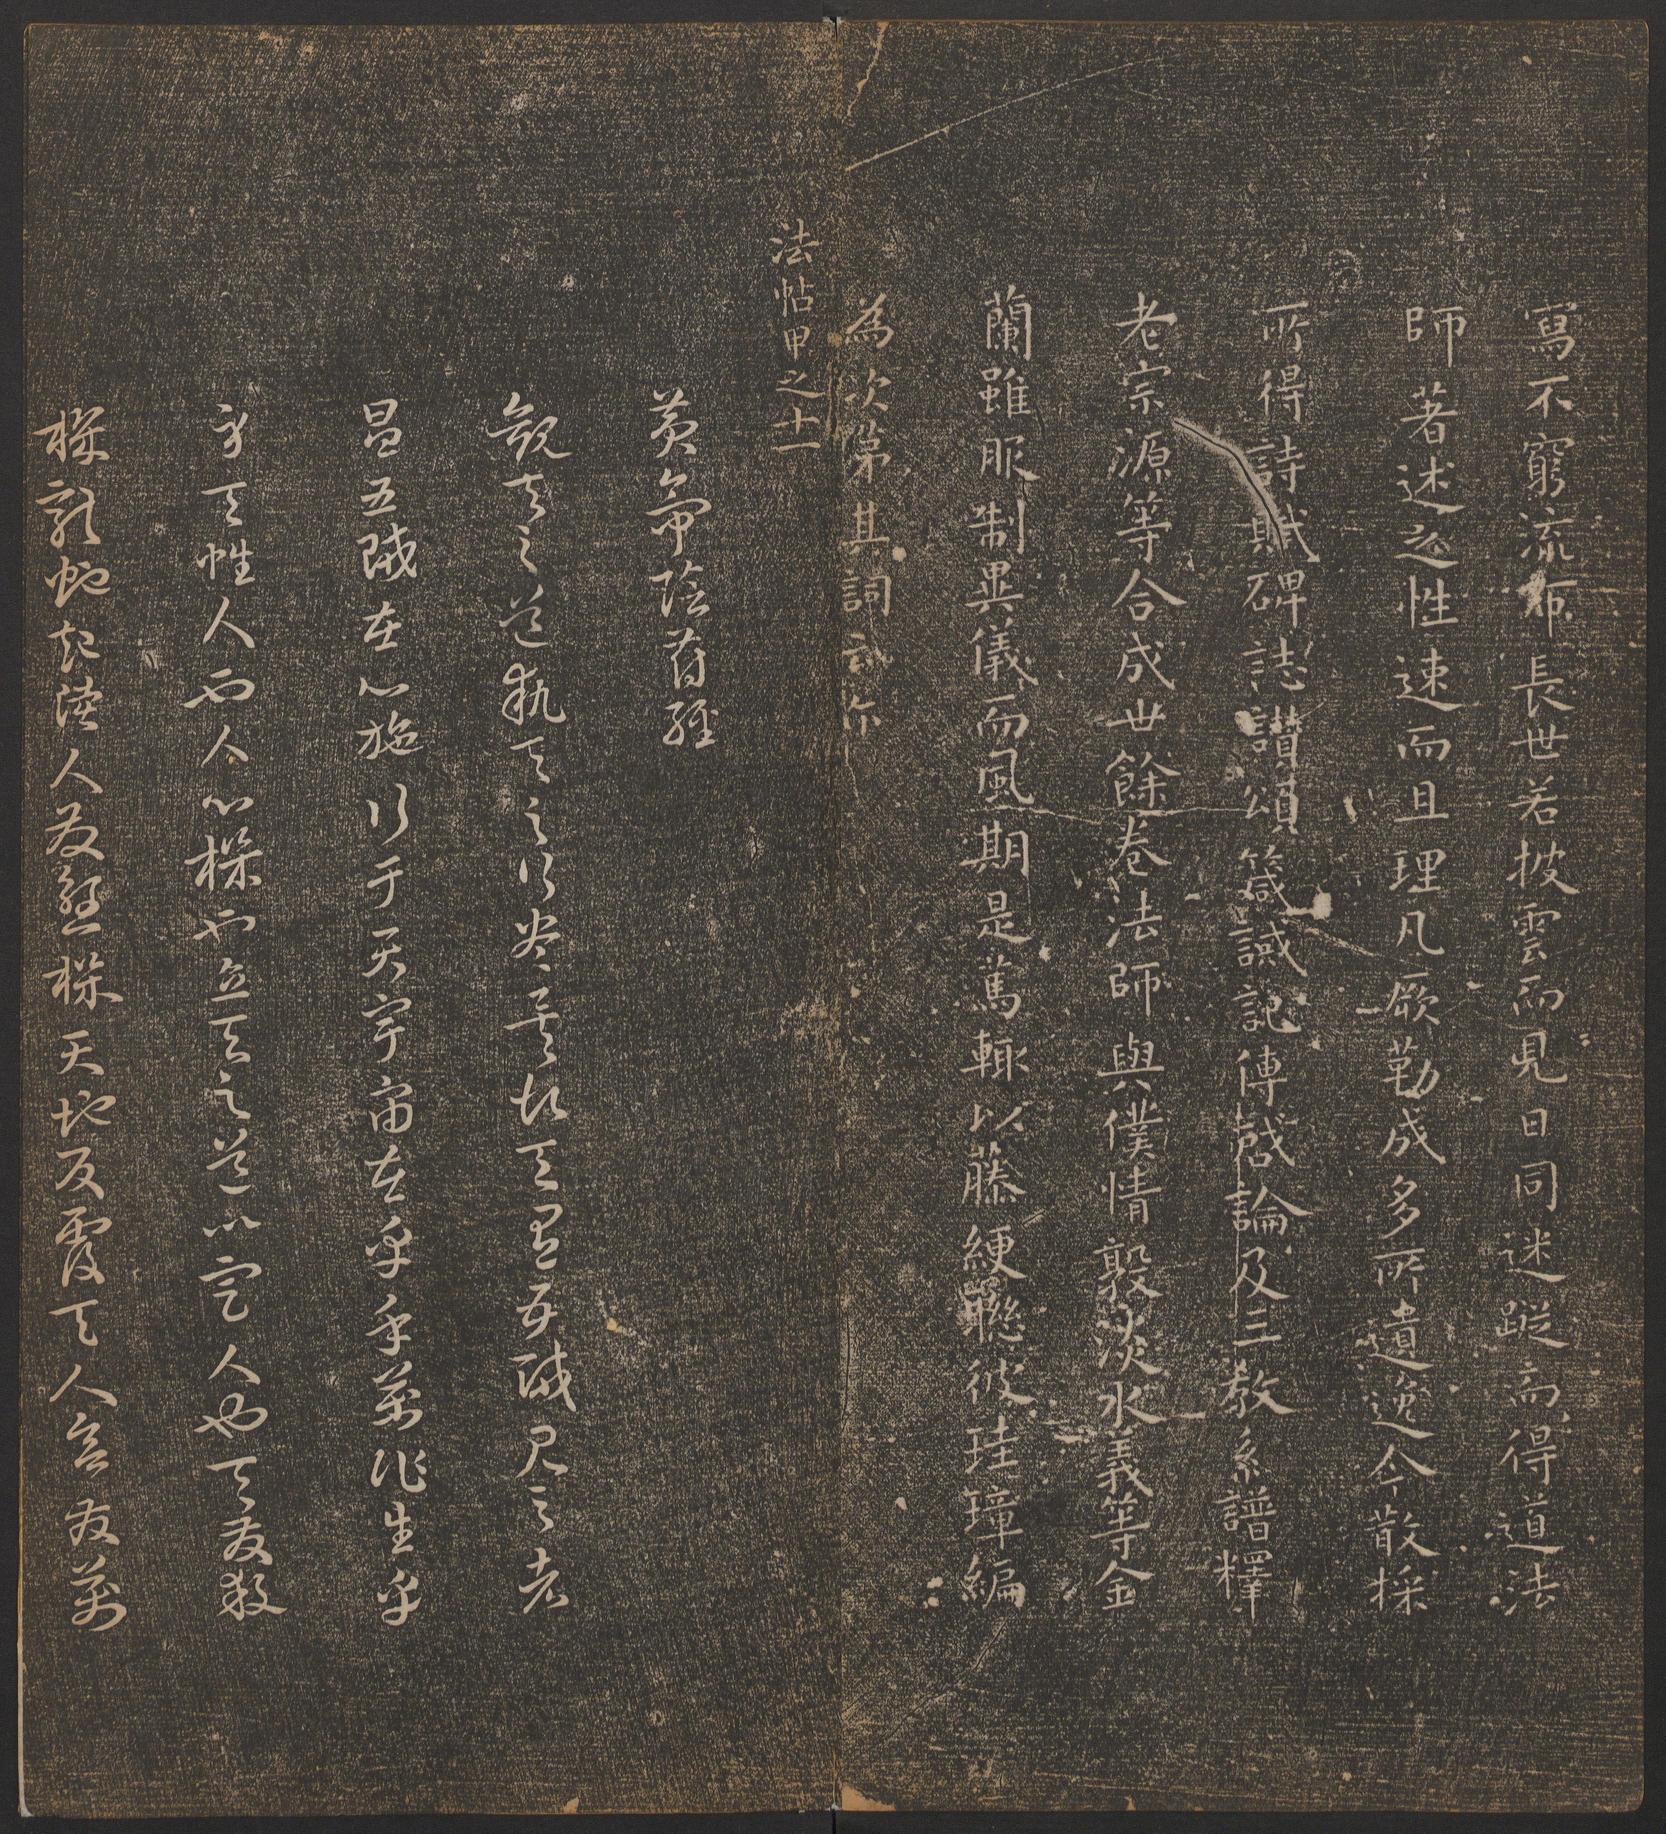 寫不窮流布長世若披雲而見日同迷蹤而得道法
師著述之性速而且理凡厥勒成多所遺逸今散採
所得詩賦碑誌讚頌箴誡記傳啓論及三教系譜釋
老宗源等合成世餘卷法師與僕情敦淡水義等金
蘭雖服制異儀而風期是篤輒以藤綆聯彼珪璋編
為次第其詞云尔
法帖甲之十一
黃帝陰符經
觀天之道執天之行盡矣故天有五賊見之者
昌五賊在心施行于天宇宙在乎手萬化生乎
身天性人也人心機也立天之道以定人也天發殺
機龍蛇起陸人發殺機天地反覆天人合發萬